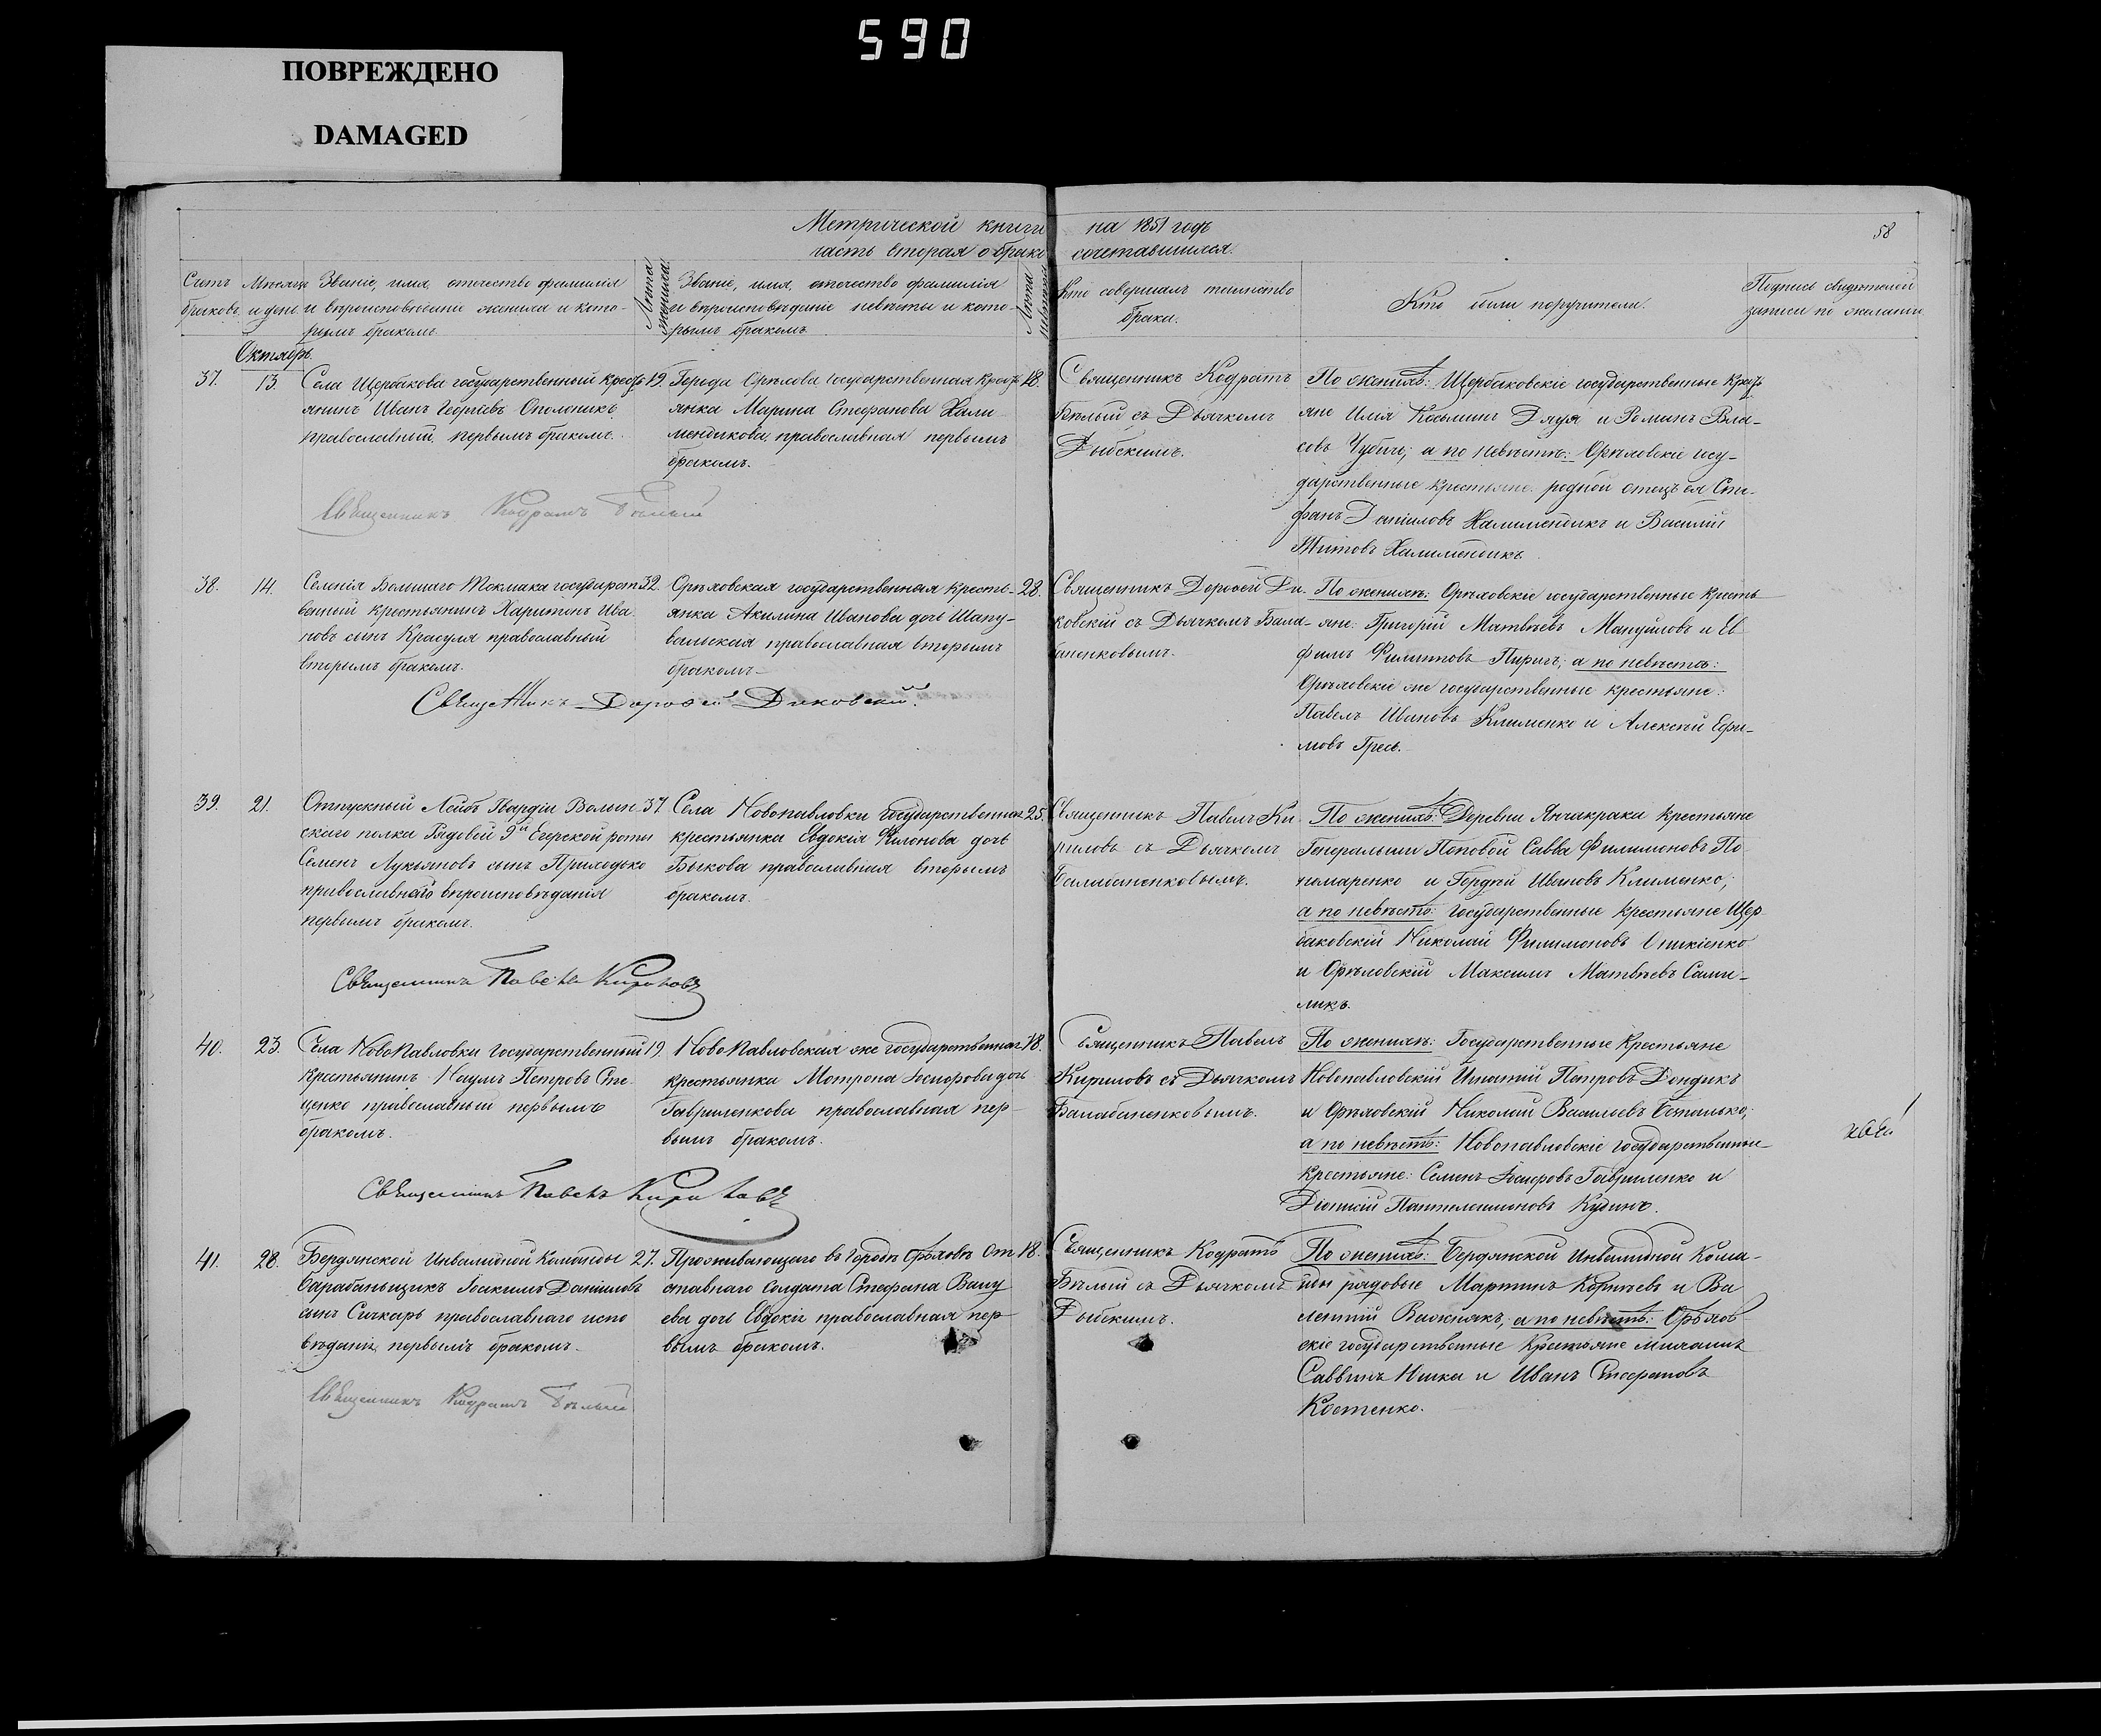 590
ПОВРЕЖДЕНО
DAMAGED
Метрической книги на 1851 годъ
часть вторая о бракосочетавшихся.
58
Счетъ браковъ.
Мѣсяцъ и день
Званіе, имя, отечество фамилія
и вѣроисповѣданіе жениха и кото-
рымъ бракомъ.
Лѣта жениха.
Званіе, имя, отечество фамилія
и вѣроисповѣданіе невѣсты и кото-
рымъ бракомъ.
Лѣта невѣсты
Кто совершалъ таинство
брака.
Кто были поручители.
Подпись свидѣтелей
записи по желанію
Октябрь.
37.
13.
Села Щербакова государственный крестъ-
янинъ Иванъ Георгіевъ Ополоникъ
православный, первымъ бракомъ.
19.
Города Орѣхова государственная крестъ-
янка Марина Стефанова Хали
мендикова, православная первымъ
бракомъ.
18.
Священникъ Кодратъ
Бѣлый съ Дьячкомъ
Дыбскимъ.
По женихѣ: Щербаковскіе государственные крестъ
яне Илія Косьминъ Дядя и Романъ Вла-
совъ Чубичъ; а по невѣстѣ: Орѣховскіе госу-
дарственные крестьяне родной отецъ ея Сте-
фанъ Даніиловъ Халимендикъ и Василій
Титовъ Халимендикъ
Священникъ Кодратъ Бѣлый
38.
14.
Селенія Большаго Токмака государст
венный крестьянинъ Харитонъ Ива
новъ сынъ Красуля православный
вторымъ бракомъ.
32.
Орѣховская государственная кресть-
янка Акилина Иванова дочь Шапу-
вальская православная вторымъ
бракомъ
28.
Священникъ Дорофей Ди-
ковскій съ Дьячкомъ Бала-
баненковымъ.
По женихѣ: Орѣховскіе государственные кресть
яне: Григорій Матвѣевъ Мануйловъ и Ев
фимъ Филиповъ Пиричъ; а по невѣстѣ:
Орѣховскіе же государственные крестьяне:
Павелъ Ивановъ Клименко и Алексѣй Ефи-
мовъ Гресь.
Священникъ Дорофей Диковскій.
39.
21.
Отпускный Лейбъ Гвардіи Волын
скаго полка Рядовой 9й Егерской роты
Семенъ Лукьяновъ сынъ Приходько
православнаго вѣроисповѣданія
первымъ бракомъ.
37
Села Новопавловки Государственная
крестьянка Евдокія Филонова дочь
Быкова православная вторымъ
бракомъ.
25.
Священникъ Павелъ Ки
риловъ съ Дьячкомъ
Балабаненковымъ.
По женихѣ: Деревни Янчикраки крестьяне
Генеральши Поповой Савва Филимоновъ По
номаренко и Гордѣй Ивановъ Клименко;
а по невѣстѣ: Государственные крестьяне Щер
баковскій Николай Филимоновъ
и Орѣховскій Максимъ Матвѣевъ Сами-
ликъ.
Священникъ Павелъ Кириловъ
40.
23.
Села НовоПавловки Государственный
крестьянинъ Наумъ Петровъ Сте
ценко православный первымъ
бракомъ.
19.
НовоПавловская же государственная
крестьянка Мотрона Іосифова дочь
Гавриленкова православная пер-
вымъ бракомъ.
18.
Священникъ Павелъ
Кириловъ съ Дьячкомъ
Балабаненковымъ.
По женихѣ: Государственные Крестьяне
Новопавловскій Игнатій Петровъ Дондикъ
и Орѣховскій Николай Васильевъ
а по невѣстѣ: Новопавловскіе Государственные
Крестьяне: Семенъ Іосифовъ Гавриленко и
Діонисій Пантелеимоновъ Кудинъ.
Священникъ Павелъ Кириловъ
41.
28.
Бердянской Инвалидной Команды
барабанщикъ Іоакимъ Даниловъ
сынъ Сичкарь православнаго испо
вѣданія, первымъ бракомъ.
27.
Проживающаго въ Городѣ Орѣховѣ От
ставнаго Солдата Стефана Вану
ева дочь Евдокія православная пер-
вымъ бракомъ.
18.
Священникъ Кодратъ
Бѣлый съ Дьячкомъ
Дыбскимъ.
По женихѣ: Бердянской Инвалидной Коман-
ды рядовые Мартинъ Корнѣевъ и Ва
лентій Вижнякъ; а по невѣстѣ: Орѣхов
скіе государственные Крестьяне Михаилъ
Саввинъ Ница и Иванъ Стефановъ
Костенко.
Священникъ Кодратъ Бѣлый